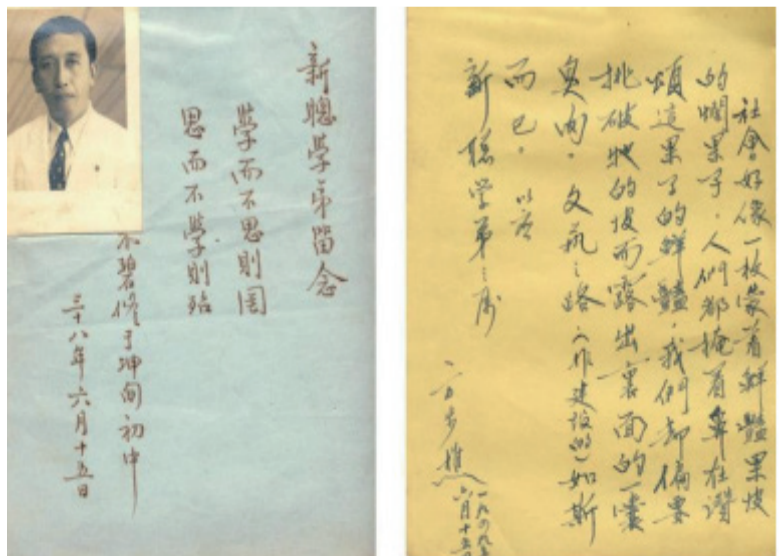 新聰學弟留念
學而不思則罔
思而不學則殆
碧修于坤甸初中
三十八年六月十五日
社會好像一枚蒙着鮮豔果皮
的爛果子，人們都掩着鼻在讚
頌這果子的鮮豔，我們却偏要
挑破牠的皮而露出裏面的一囊
臭肉。文藝之路（非建設的）如斯
而已。 以答
新聰学弟之属
一九四九年
六月十五日